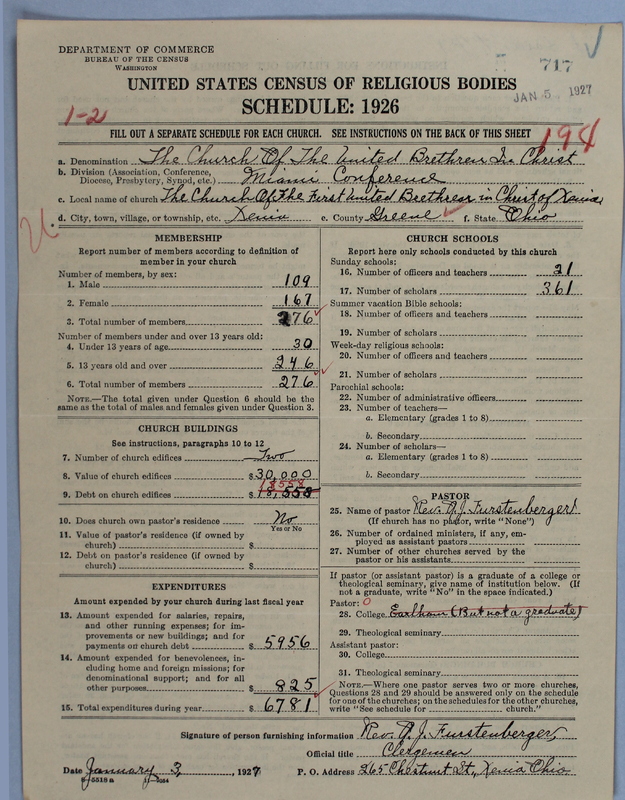 DEPARTMENT OF COMMERCE
BUREAU OF THE CENSUS
WASHINGTON
717
JAN 5 1927
UNITED STATES CENSUS OF RELIGIOUS BODIES
SCHEDULE: 1926
1-2
FILL OUT A SEPARATE SCHEDULE FOR EACH CHURCH. SEE INSTRUCTIONS ON THE BACK OF THIS SHEET
194
a. Denomination The Church Of The United Brethren In Christ
b. Division (Association, Conference, Diocese, Presbytery, Synod, etc.) Miami Conference
c. Local name of church The Church Of The First United Brethren in Christ of Xenia
d. City, town, village, or township, etc. Xenia e. County Greene f. State Ohio
MEMBERSHIP
Report number of members according to definition of
member in your church
Number of members, by sex:
1. Male 109
2. Female 167
3. Total number of members 276
Number of members under and over 13 years old:
4. Under 13 years of age 30
5. 13 years old and over 246
6. Total number of members 276
NOTE.—The total given under Question 6 should be
the same as the total of males and females given under Question 3.
CHURCH BUILDINGS
See instructions, paragraphs 10 to 12
7. Number of church edifices Two
8. Value of church edifices $ 30,000
9. Debt on church edifices $ 18,558
18558
10. Does church own pastor's residence No
Yes or No
11. Value of pastor's residence (if owned by
church) $
12. Debt on pastor's residence (if owned by
church) $
EXPENDITURES
Amount expended by your church during last fiscal year
13. Amount expended for salaries, repairs,
and other running expenses; for im-
provements or new buildings; and for
payments on church debt $ 5956
14. Amount expended for benevolences, in-
cluding home and foreign missions; for
denominational support; and for all
other purposes $ 825
15. Total expenditures during year $ 6781
CHURCH SCHOOLS
Report here only schools conducted by this church
Sunday schools:
16. Number of officers and teachers 21
17. Number of scholars 361
Summer vacation Bible schools:
18. Number of officers and teachers
19. Number of scholars
Week-day religious schools:
20. Number of officers and teachers
21. Number of scholars
Parochial schools:
22. Number of administrative officers
23. Number of teachers—
a. Elementary (grades 1 to 8)
b. Secondary
24. Number of scholars—
a. Elementary (grades 1 to 8)
b. Secondary
PASTOR
25. Name of pastor Rev. A. J. Furstenberger
(If church has no pastor, write "None")
26. Number of ordained ministers, if any, em-
ployed as assistant pastors
27. Number of other churches served by the
pastor or his assistants
If pastor (or assistant pastor) is a graduate of a college or
theological seminary, give name of institution below. (If
not a graduate, write "No" in the space indicated.)
Pastor: 0
28. College Earlham (But not a graduate)
29. Theological seminary
Assistant pastor:
30. College
31. Theological seminary
NOTE.—Where one pastor serves two or more churches,
Questions 28 and 29 should be answered only on the schedule
for one of the churches; on the schedules for the other churches,
write "See schedule for church."
Signature of person furnishing information Rev. A. J. Furstenberger,
Official title Clergemen
Date January 3, 1927 P. O. Address 265 Chestnut St., Xenia Ohio.